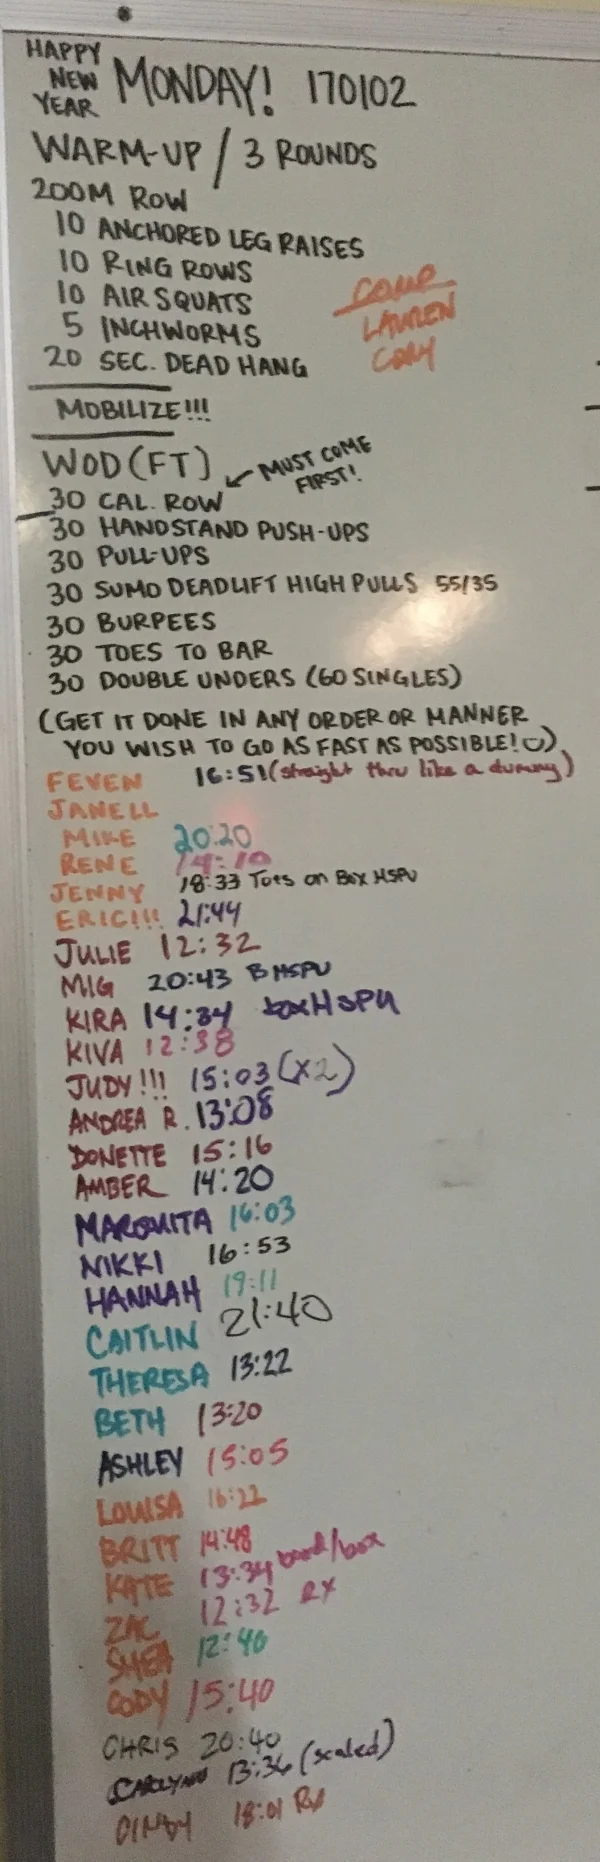 HAPPY NEW YEAR MONDAY! 170102
WARM-UP / 3 ROUNDS
200M ROW
10 ANCHORED LEG RAISES
10 RING ROWS
10 AIR SQUATS
5 INCHWORMS
20 SEC. DEAD HANG
COMP
LAUREN
CORY
MOBILIZE!!!
WOD (FT) MUST COME FIRST!
30 CAL. ROW
30 HANDSTAND PUSH-UPS
30 PULL-UPS
30 SUMO DEADLIFT HIGH PULLS 55/35
30 BURPEES
30 TOES TO BAR
30 DOUBLE UNDERS (60 SINGLES)
(GET IT DONE IN ANY ORDER OR MANNER
YOU WISH TO GO AS FAST AS POSSIBLE! ☺)
FEVEN 16:51 (straight thru like a dummy)
JANELL
MIKE 20:20
RENE 14:10
JENNY 18:33 Toes on Box HSPU
ERIC!!! 21:44
JULIE 12:32
MIG 20:43 B HSPU
KIRA 14:34 box HSPU
KIVA 12:38
JUDY!!! 15:03 (x2)
ANDREA R. 13:08
DONETTE 15:16
AMBER 14:20
MARQUITA 16:03
NIKKI 16:53
HANNAH 19:11
CAITLIN 21:40
THERESA 13:22
BETH 13:20
ASHLEY 15:05
LOUISA 16:22
BRITT 14:48
KATE 13:34 band/box
ZAC 12:32 RX
SHEA 12:40
CODY 15:40
CHRIS 20:40
CAROLYNN 13:36 (scaled)
18:01 Rx